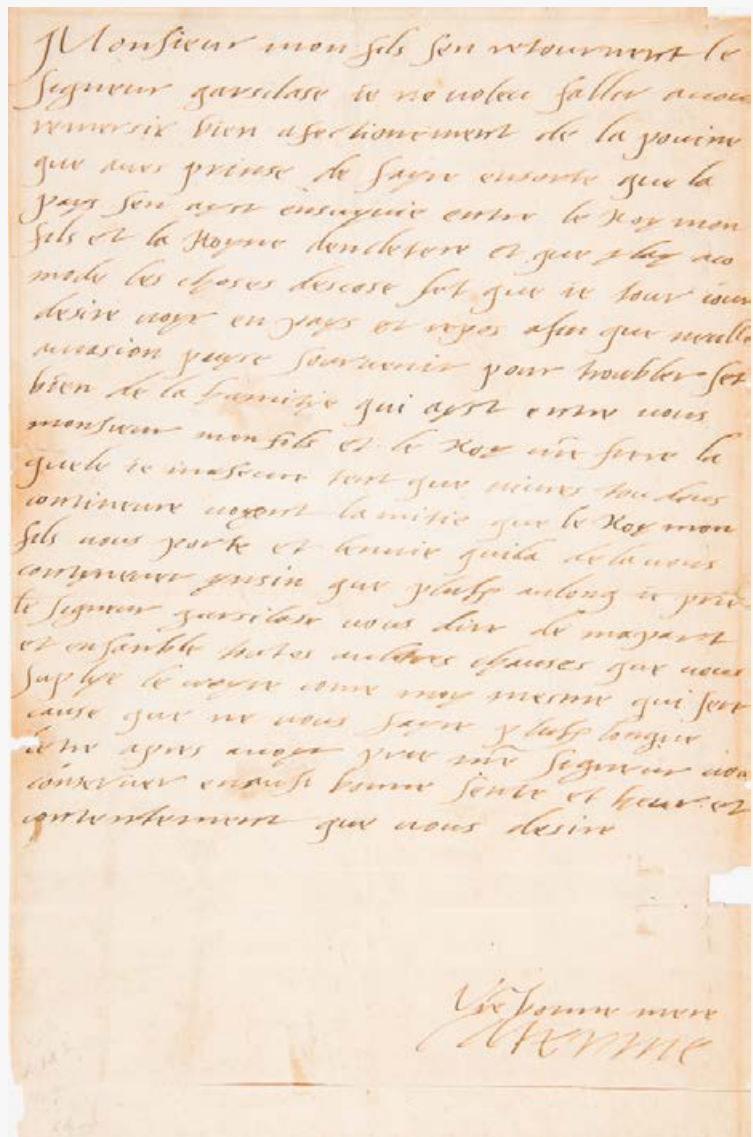 Monsieur mon fils sen retournent le
signeur garsilase ie ne voleu fallir
remersie bien afectionement de la pouine
que aves prinse de fayre ensorte que la
pays sen ayst ensuyvie entre le Roy mon
fils et la Royne dencletere et que aco
mode les choses descose set que ie tour iour
desire voyr en pays et repos afin que neulle
aucasion puyse sourvenir pour troubler set
bien de la hamitie qui ayst entre vous
monsieur mon fils et le Roy mr frere la
quele ie masseure tent que vivres tou deus
contineure voyent lamitie que le Roy mon
fils vous porte et lenvie quila de la vous
contineuer ynsin que plulss aulong ie prie
le signeur garsilase vous dire de mapart
et ensanble toutes aultres chauses que vous
suplye le croyre come moy mesme qui sera
cause que ne vous fayre plulss longue
letre apres avoyr prie nre signeur vous
conserver enausi bonne sente et heur et
contentement que vous desire
Vre bonne mere
Caterine